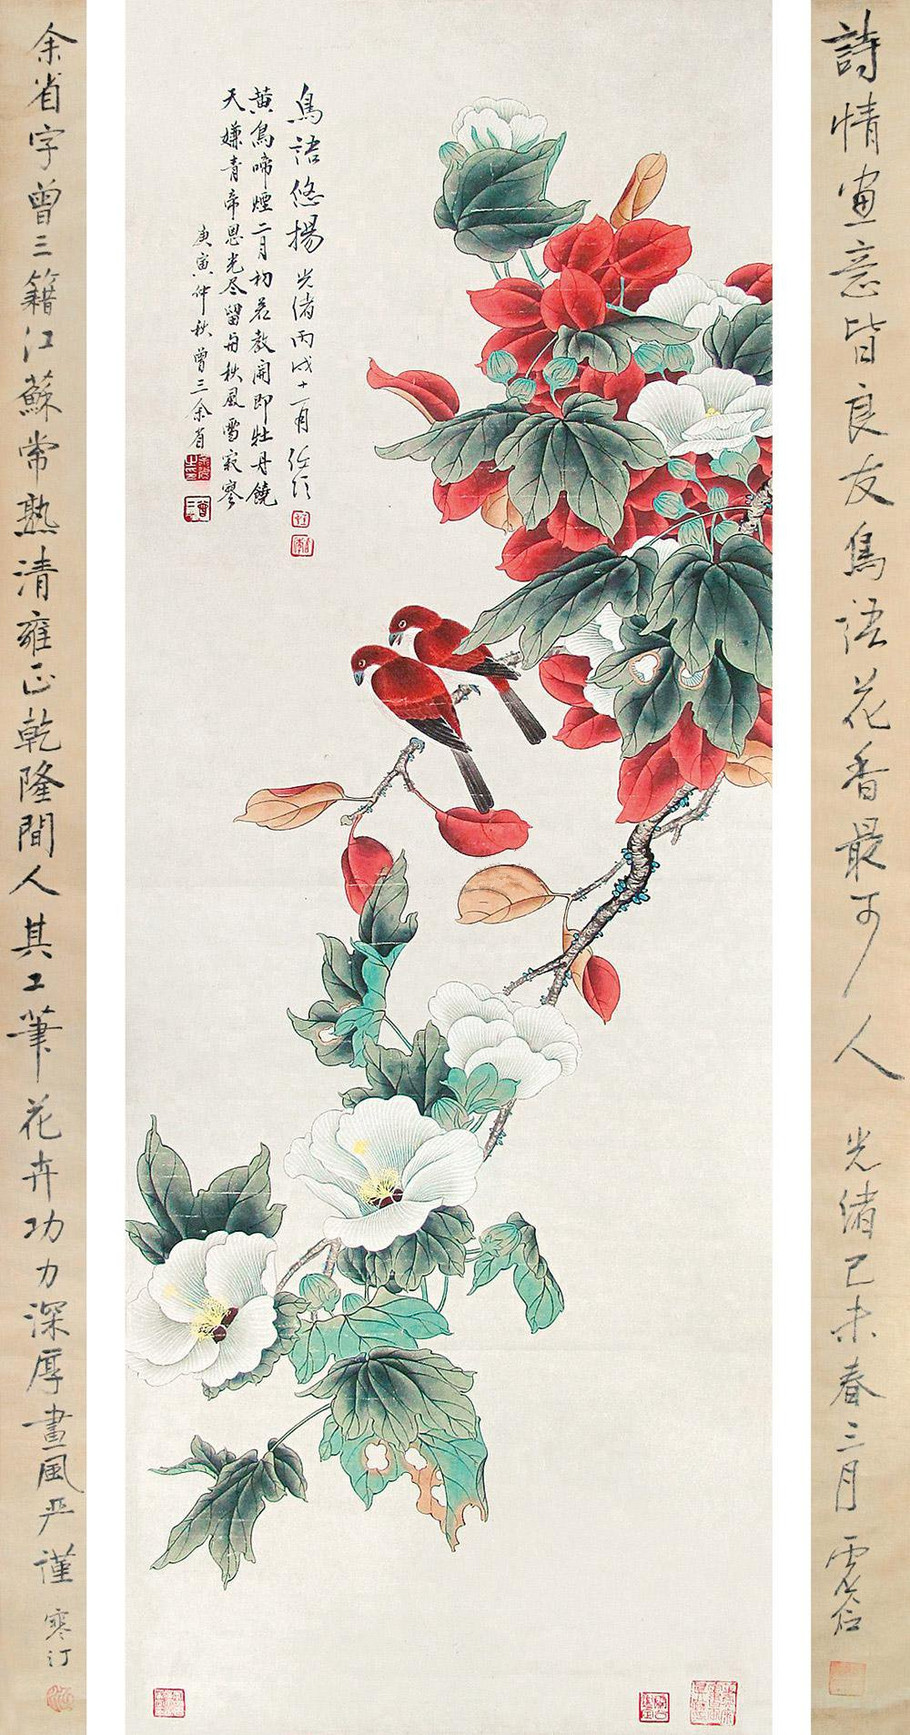 詩情畫意皆良友鳥語花香最可人 光緒己未春三月 虛谷
鳥語悠揚 光緒丙戌十一月 任頤
黄鳥啼煙二月初若教開即牡丹饒
天嫌青帝恩光尽留与秋風雪寂寥
庚寅仲秋曾三余省
余省字曾三籍江蘇常熟清雍正乾隆間人其工筆花卉功力深厚畫風严謹 寒汀